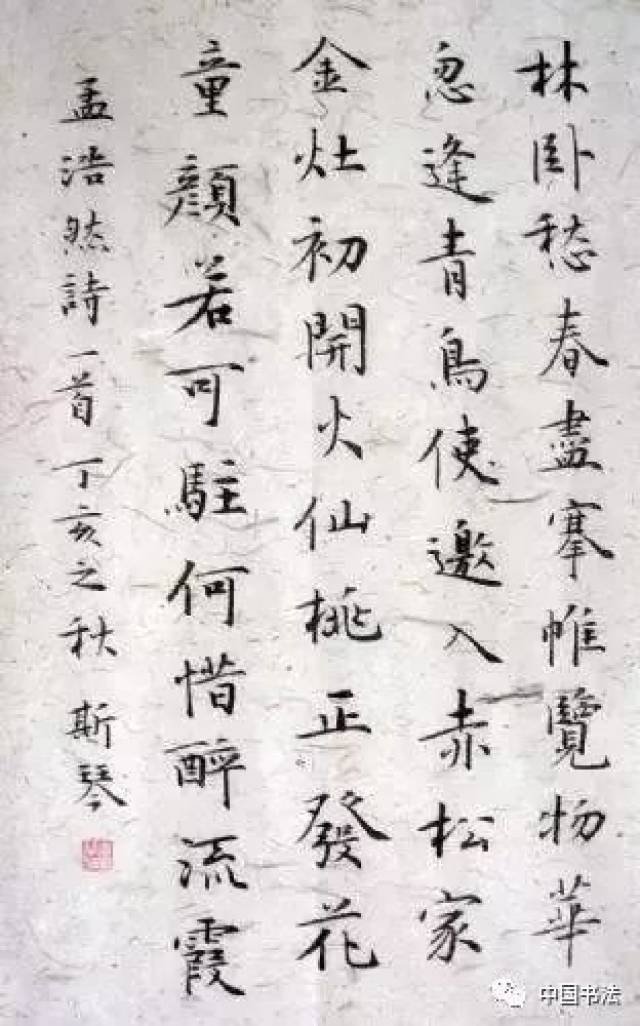 林卧愁春盡搴帷覽物華
忽逢青鳥使邀入赤松家
金灶初開火仙桃正發花
童顏若可駐何惜醉流霞
孟浩然詩一首丁亥之秋 斯琴
中国书法